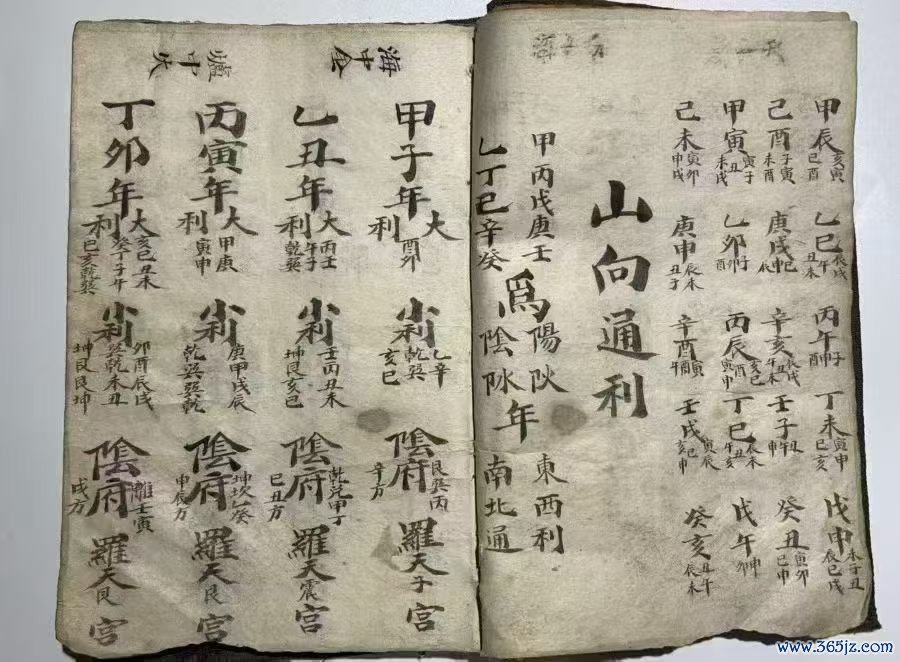 甲辰 亥寅 巳酉
乙巳 辰戌
丙午
丁未 寅申 巳亥
戊申 未子丑 辰巳戌
己酉 子寅 未酉
庚戌
辛亥
壬子
癸丑 寅卯 巳申
甲寅 寅子丑 未戌
乙卯 子卯 酉
丙辰 亥巳 寅申酉
丁巳
戊午 申卯
己未 寅卯 申戌
庚申 辰未 丑子
辛酉
壬戌 寅辰 亥巳
癸亥 丑午 辰未
山向通利
甲丙戊庚壬
乙丁己辛癸
為
陽
陰
年
東西利
南北通
海中金
甲子年
大利 酉卯
小利 乙辛乾巽亥巳
陰府 艮巽丙
辛方
羅天子宮
乙丑年
大利 丙壬午子乾巽
小利 壬丙丑未坤艮亥巳
陰府 乾兌甲子
巳丑方
羅天震宮
爐中火
丙寅年
大利 甲庚寅申
小利 庚甲戌辰乾巽巽乾
陰府 坤坎乙癸
申辰方
羅天艮宮
丁卯年
大利 亥巳丑未癸丁子午巳亥乾巽
小利 卯酉辰戌巽乾未丑坤艮艮坤
陰府 離壬寅
戌方
羅天艮宮
www.365jz.com